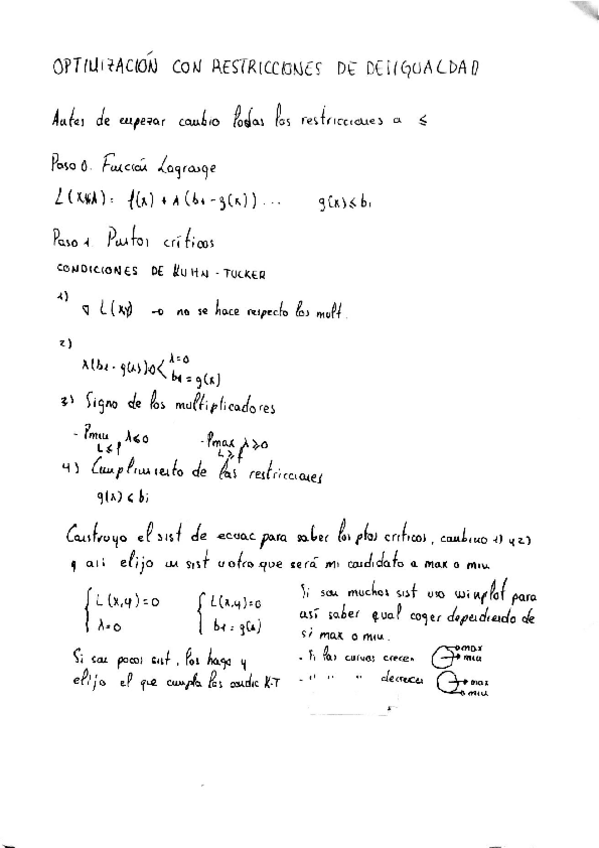 OPTIMIZACIÓN CON RESTRICCIONES DE DESIGUALDAD
Antes de empezar cambio todas las restricciones a ≤
Paso 0. Función Lagrange
L(x,y,λ) = f(x) + λ(b1 - g(x)) ... g(x) ≤ bi
Paso 1. Puntos críticos
CONDICIONES DE KUHN - TUCKER
1)
∇ L(x,y) → no se hace respecto los mult.
2)
λ(b1 - g(x))=0 < λ=0
b1 = g(x)
3) Signo de los multiplicadores
- Pmin λ≤0 - Pmax λ≥0
L≤f L≥f
4) Cumplimiento de las restricciones
g(x) ≤ bi
Construyo el sist de ecuac para saber los ptos críticos, combino 1) y 2)
y así elijo un sist u otro que será mi candidato a max o min
{ L(x,y)=0 { L(x,y)=0 Si son muchos sist uso winplot para
λ=0 b1 = g(x) así saber qual coger dependiendo de
si max o min.
Si son pocos sist, los hago y - Si las curvas crecen →max →min
elijo el que cumpla las condic K-T - " " " decrecen →max →min